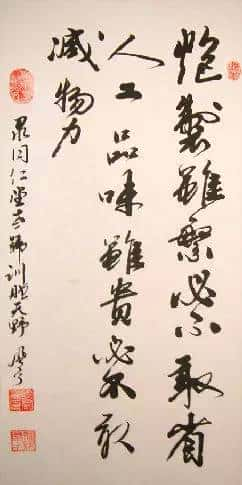 炮製雖繁必不敢省
人工品味雖貴必不敢
減物力
录同仁堂老號訓天野